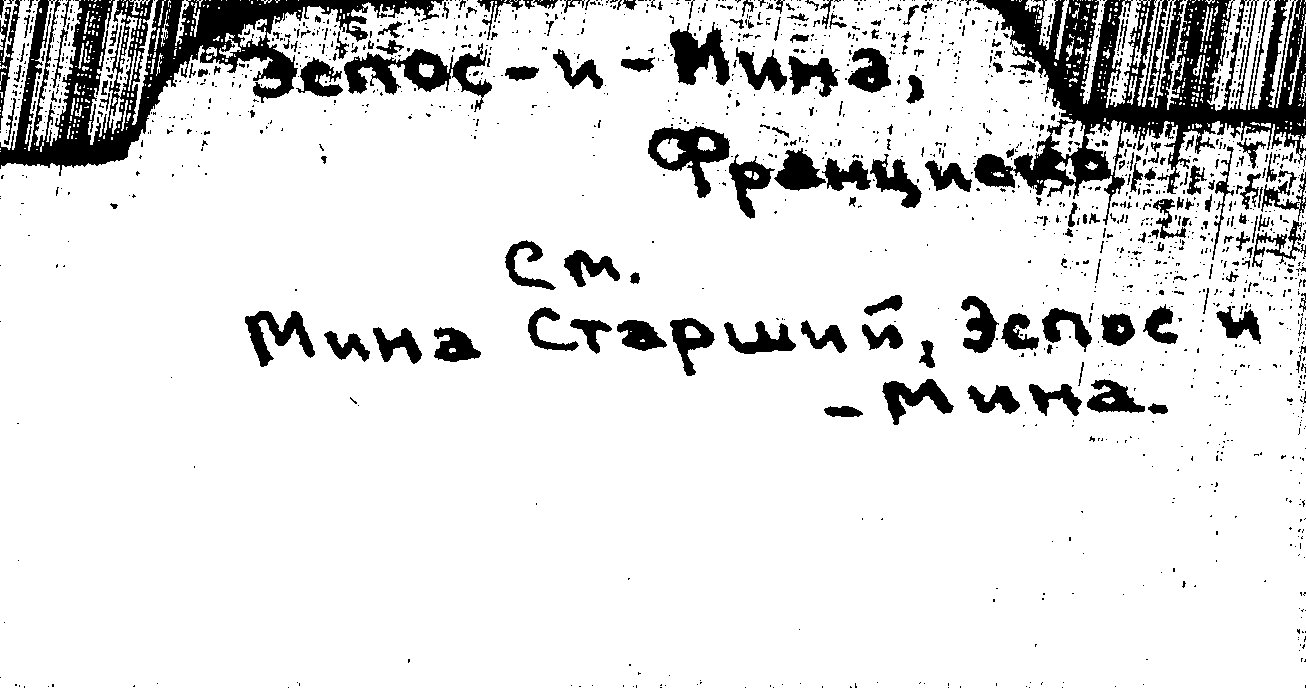 Эспос-и-Мина,
Франциско.
См.
Мина Старший, Эспос и
-Мина.